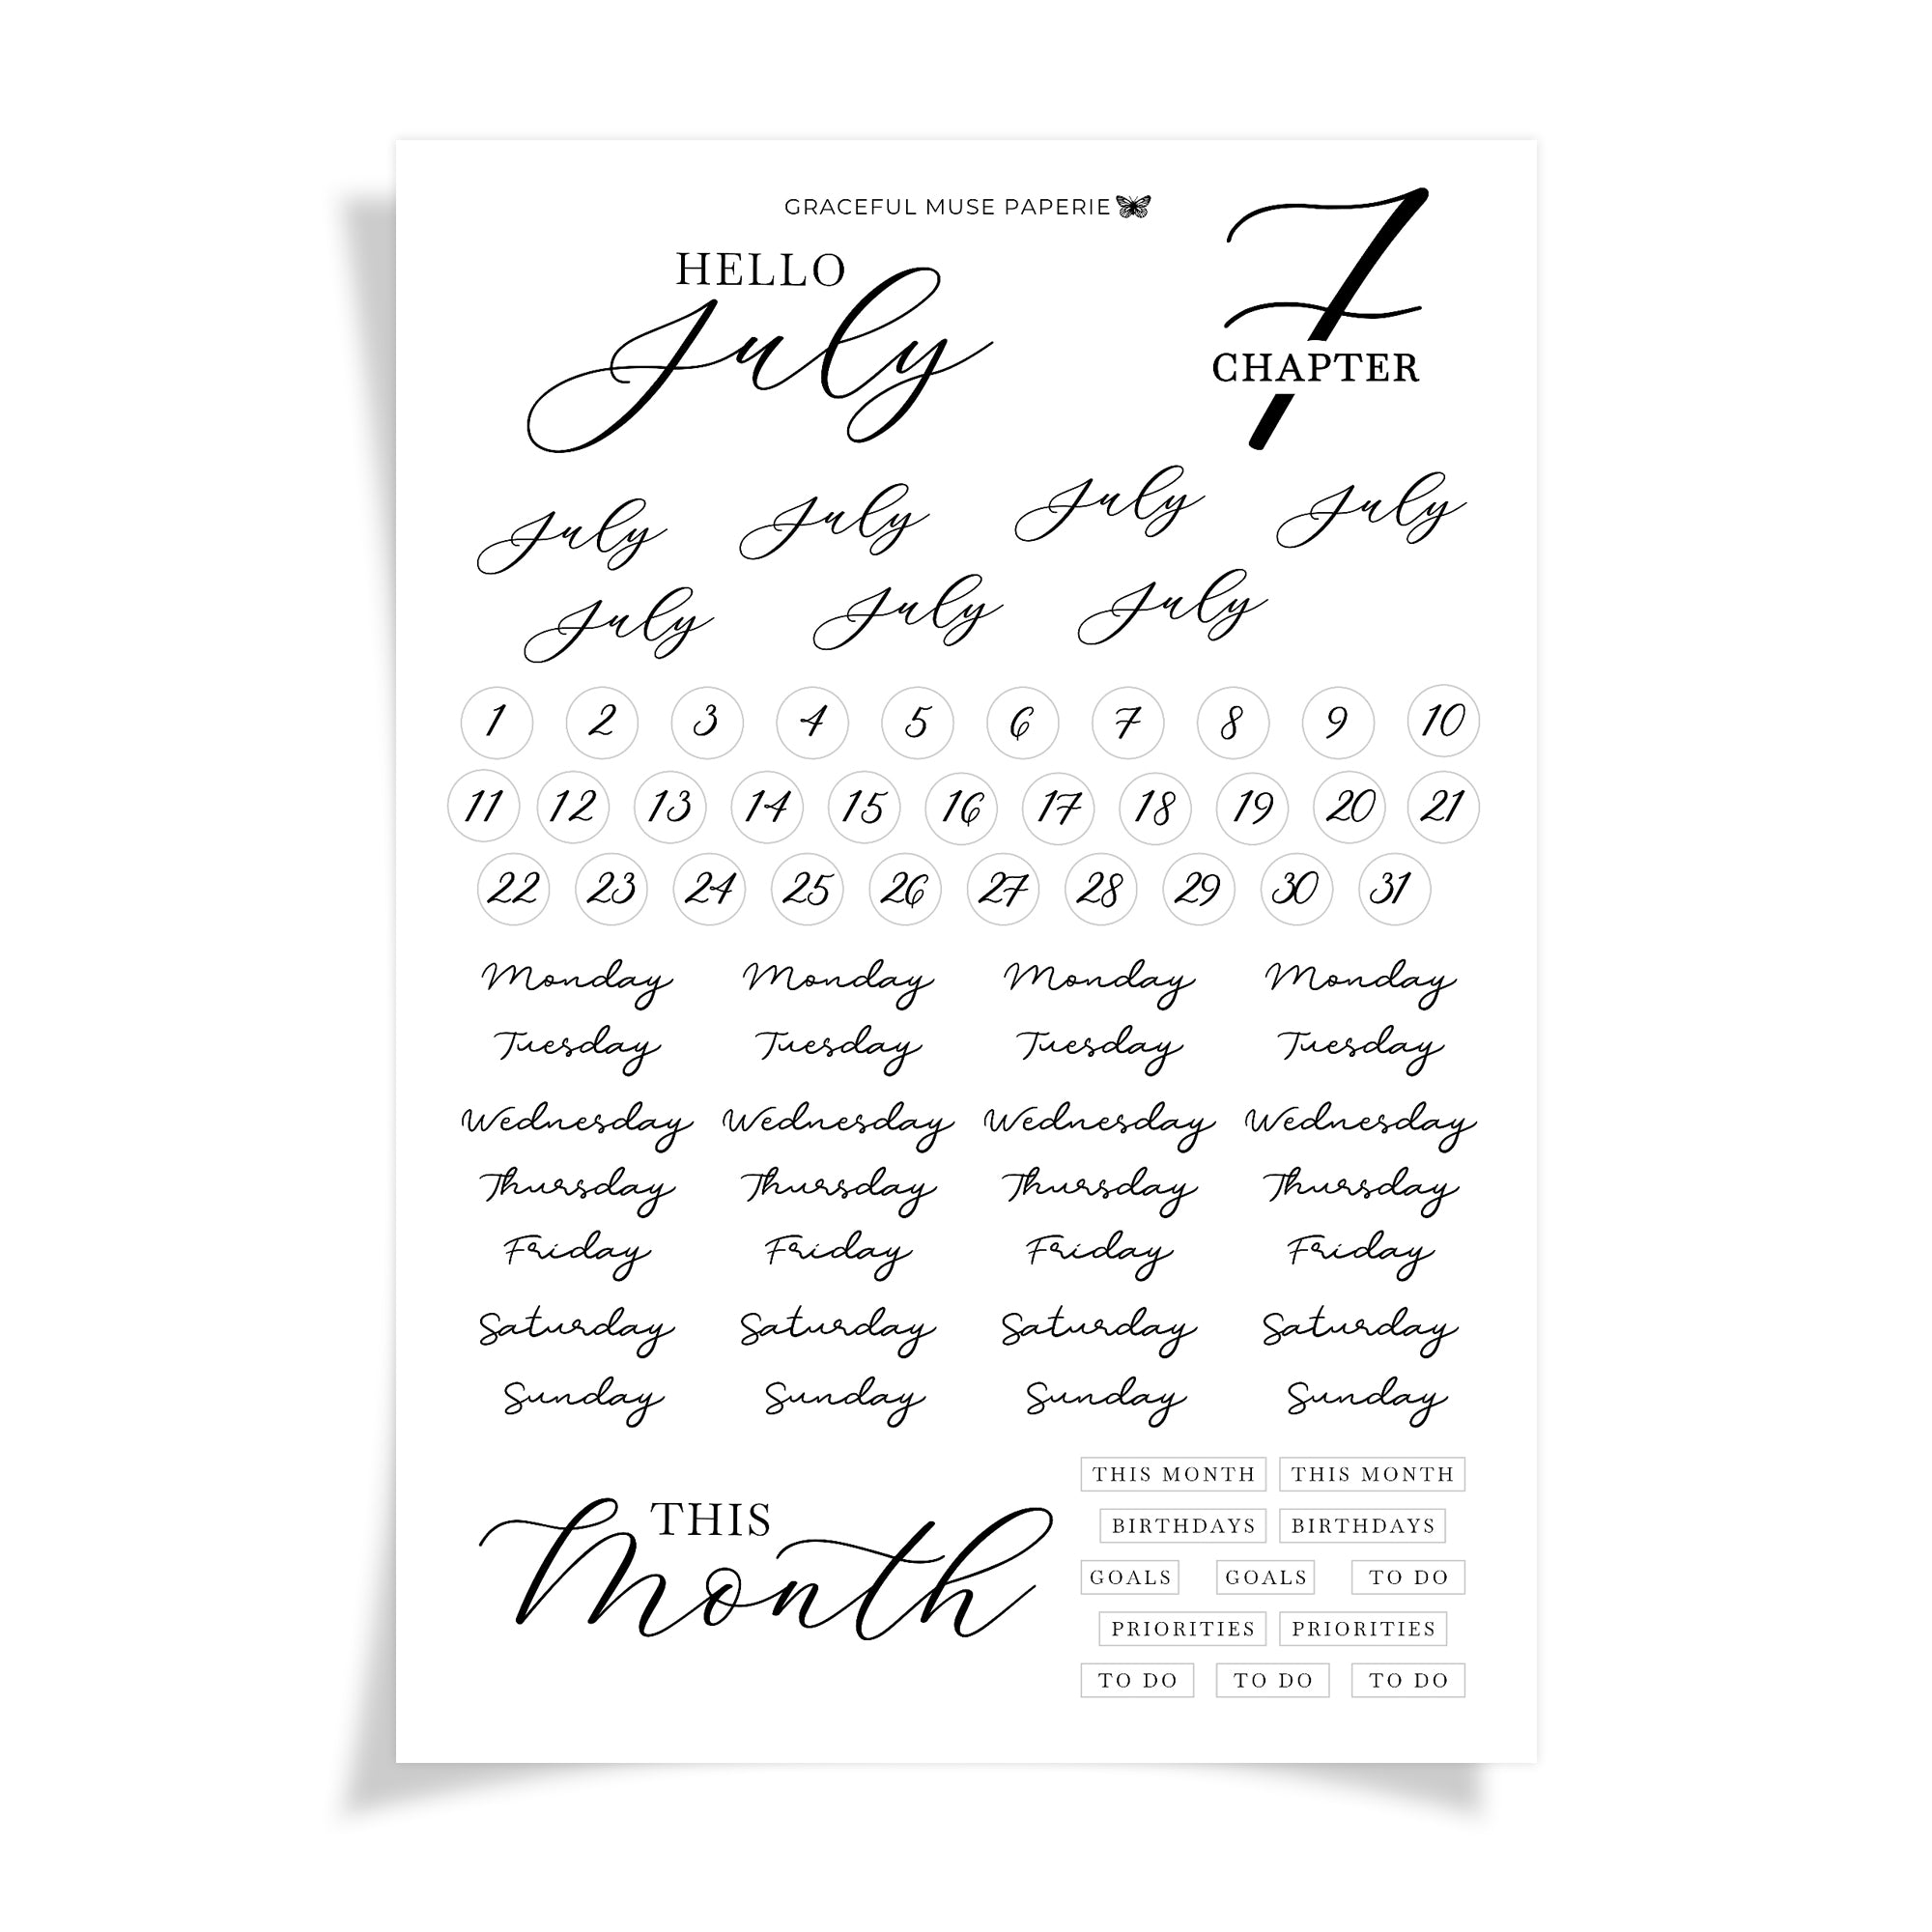 GRACEFUL MUSE PAPERIE
HELLO
July
7
CHAPTER
July July July July
July July July
1 2 3 4 5 6 7 8 9 10
11 12 13 14 15 16 17 18 19 20 21
22 23 24 25 26 27 28 29 30 31
Monday Monday Monday Monday
Tuesday Tuesday Tuesday Tuesday
Wednesday Wednesday Wednesday Wednesday
Thursday Thursday Thursday Thursday
Friday Friday Friday Friday
Saturday Saturday Saturday Saturday
Sunday Sunday Sunday Sunday
THIS
Month
THIS MONTH THIS MONTH
BIRTHDAYS BIRTHDAYS
GOALS GOALS TO DO
PRIORITIES PRIORITIES
TO DO TO DO TO DO